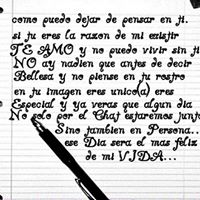 como puedo dejar de pensar en ti.
si tu eres la razon de mi existir
TE AMO y no puedo vivir sin ti
NO ay nadien que antes de decir
Bellesa y no piense en tu rostro
en tu imagen eres unico(a) eres
Especial y ya veras que algun dia
No solo por el Chat estaremos juntos
Sino tambien en Persona..
ese Dia sera el mas feliz
de mi VIDA...